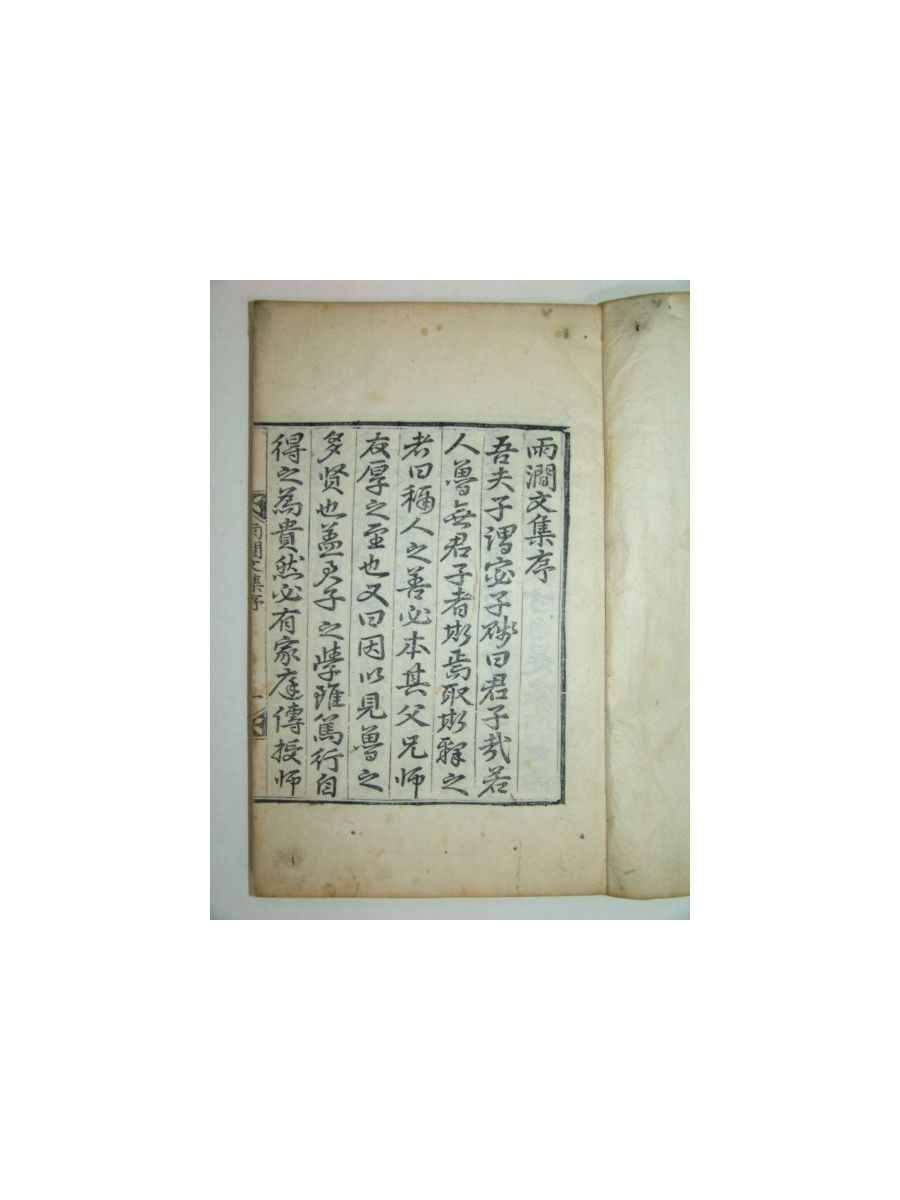 雨澗文集序
吾夫子謂宓子賤曰君子哉若
人魯無君子者斯焉取斯釋之
者曰稱人之善必本其父兄師
友厚之至也又曰因以見魯之
多賢也盖君子之學雖篤行自
得之為貴然必有家庭傳授師
雨澗文集序
一